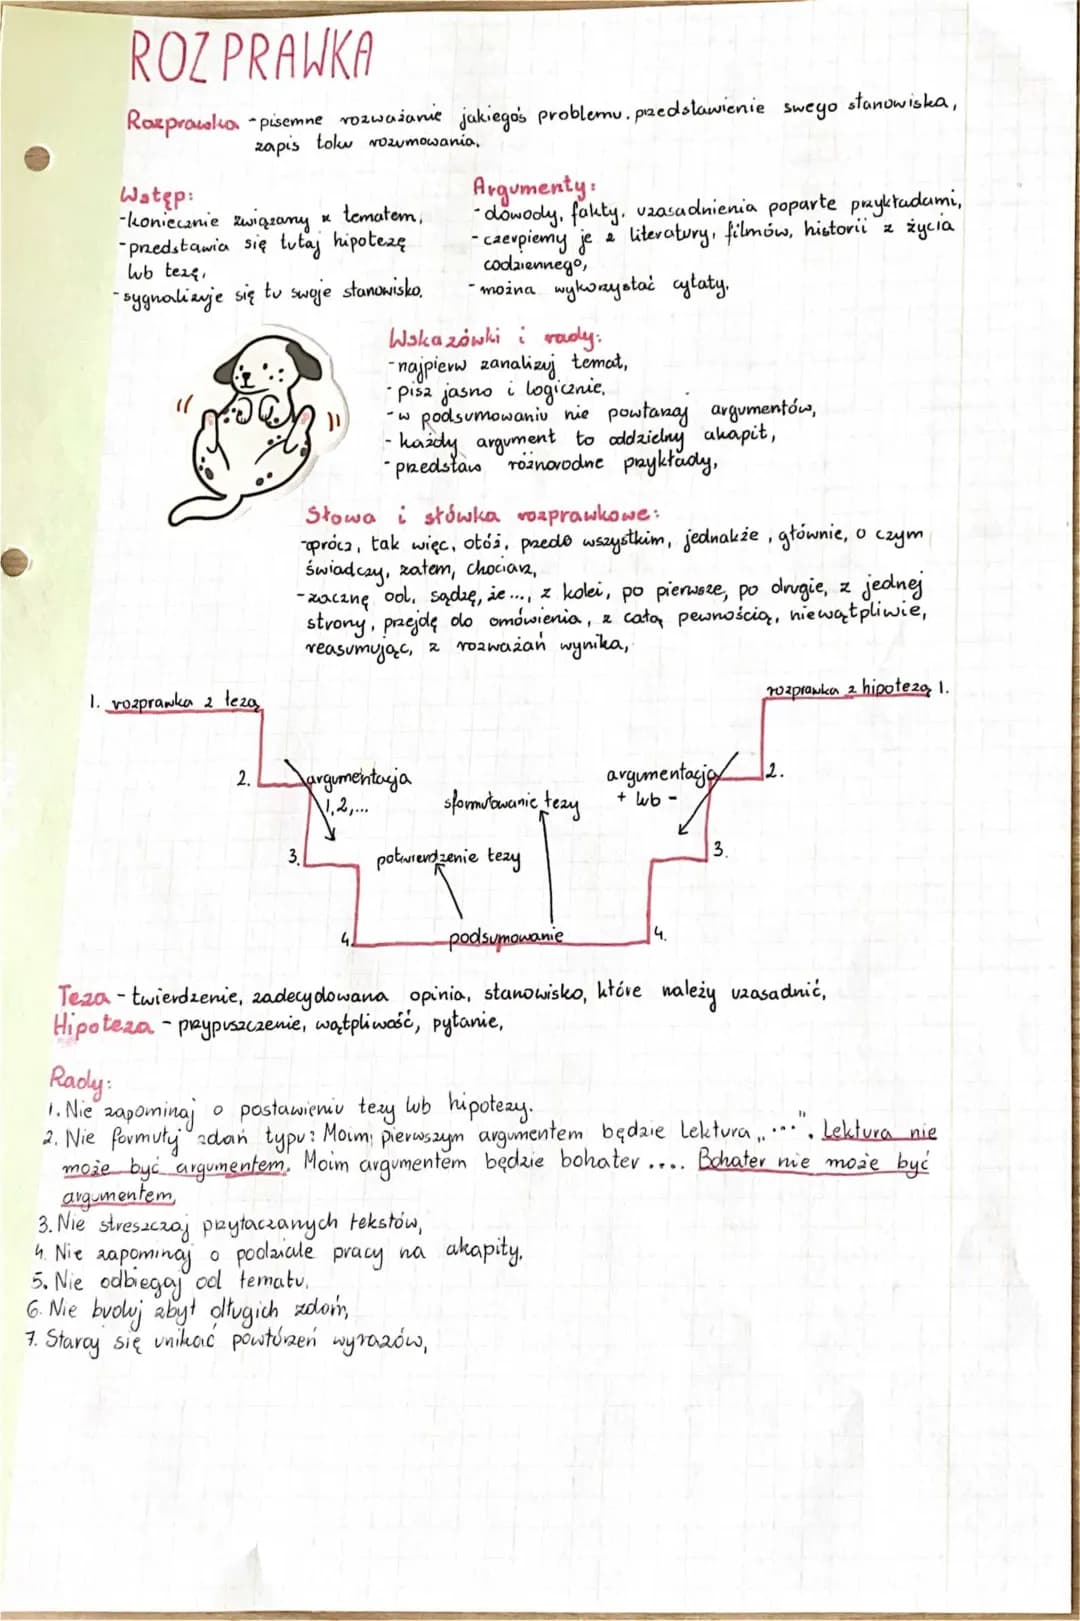 ROZPRAWKA
Rozprawka - pisemne rozważanie jakiegoś problemu. przedstawienie swego stanowiska,
zapis toku rozumowania.
Wstęp:
- koniecznie związany z tematem,
- przedstawia się tutaj hipotezę
lub tezę,
- sygnalizuje się tu swoje stanowisko.
Argumenty:
- dowody, fakty, uzasadnienia poparte przykładami,
- czerpiemy je z literatury, filmów, historii z życia
codziennego,
- można wykorzystać cytaty.
Wskazówki i rady:
- najpierw zanalizuj temat,
- pisz jasno i logicznie,
- w podsumowaniu nie powtarzaj argumentów,
- każdy argument to oddzielny akapit,
- przedstaw różnorodne przykłady,
Słowa i słówka rozprawkowe:
- oprócz, tak więc, otóż, przede wszystkim, jednakże, głównie, o czym
świadczy, zatem, chociaż,
- zacznę od, sądzę, że ..., z kolei, po pierwsze, po drugie, z jednej
strony, przejdę do omówienia, z całą pewnością, niewątpliwie,
reasumując, z rozważań wynika,
1. rozprawka z tezą
rozprawka z hipotezą 1.
2. argumentacja
1,2,...
argumentacja 2.
+ lub -
sformułowanie tezy
3. potwierdzenie tezy
3.
4. podsumowanie 4.
Teza - twierdzenie, zadecydowana opinia, stanowisko, które należy uzasadnić,
Hipoteza - przypuszczenie, wątpliwość, pytanie,
Rady:
1. Nie zapominaj o postawieniu tezy lub hipotezy.
2. Nie formuły zdań typu: Moim pierwszym argumentem będzie Lektura „...". Lektura nie
może być argumentem. Moim argumentem będzie bohater .... Bohater nie może być
argumentem,
3. Nie streszczaj przytaczanych tekstów,
4. Nie zapominaj o podziale pracy na akapity,
5. Nie odbiegaj od tematu,
6. Nie buduj zbyt długich zdań,
7. Staraj się unikać powtórzeń wyrazów,